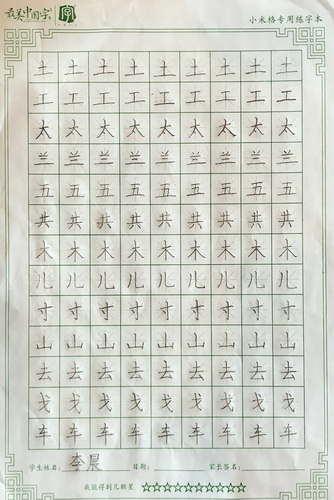 最美中国字 字 小米格专用练字本
土 土 土 土 土 土 土 土 土
工 工 工 工 工 工 工 工 工
太 太 太 太 太 太 太 太 太
兰 兰 兰 兰 兰 兰 兰 兰 兰
五 五 五 五 五 五 五 五 五
共 共 共 共 共 共 共 共 共
木 木 木 木 木 木 木 木 木
儿 儿 儿 儿 儿 儿 儿 儿 儿
寸 寸 寸 寸 寸 寸 寸 寸 寸
山 山 山 山 山 山 山 山 山
去 去 去 去 去 去 去 去 去
戈 戈 戈 戈 戈 戈 戈 戈 戈
车 车 车 车 车 车 车 车 车
学生姓名: 李晨 日期: 家长签名:
我能得到几颗星